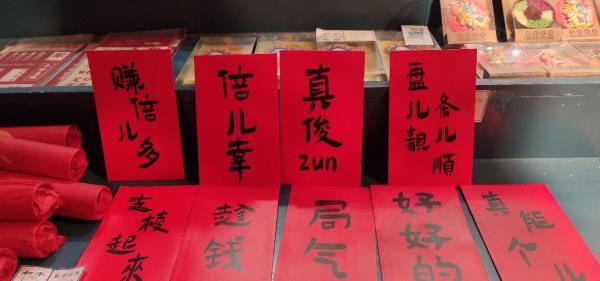 赚倍儿多
倍儿幸
真俊
zun
盘儿靚
条儿順
支棱
起來
趁钱
局气
好好的
真能个儿